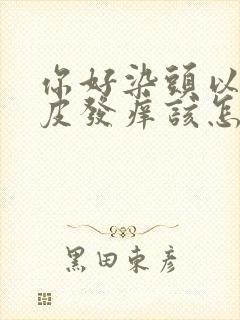 你好染頭以
皮發痒該怎
黑田東彥